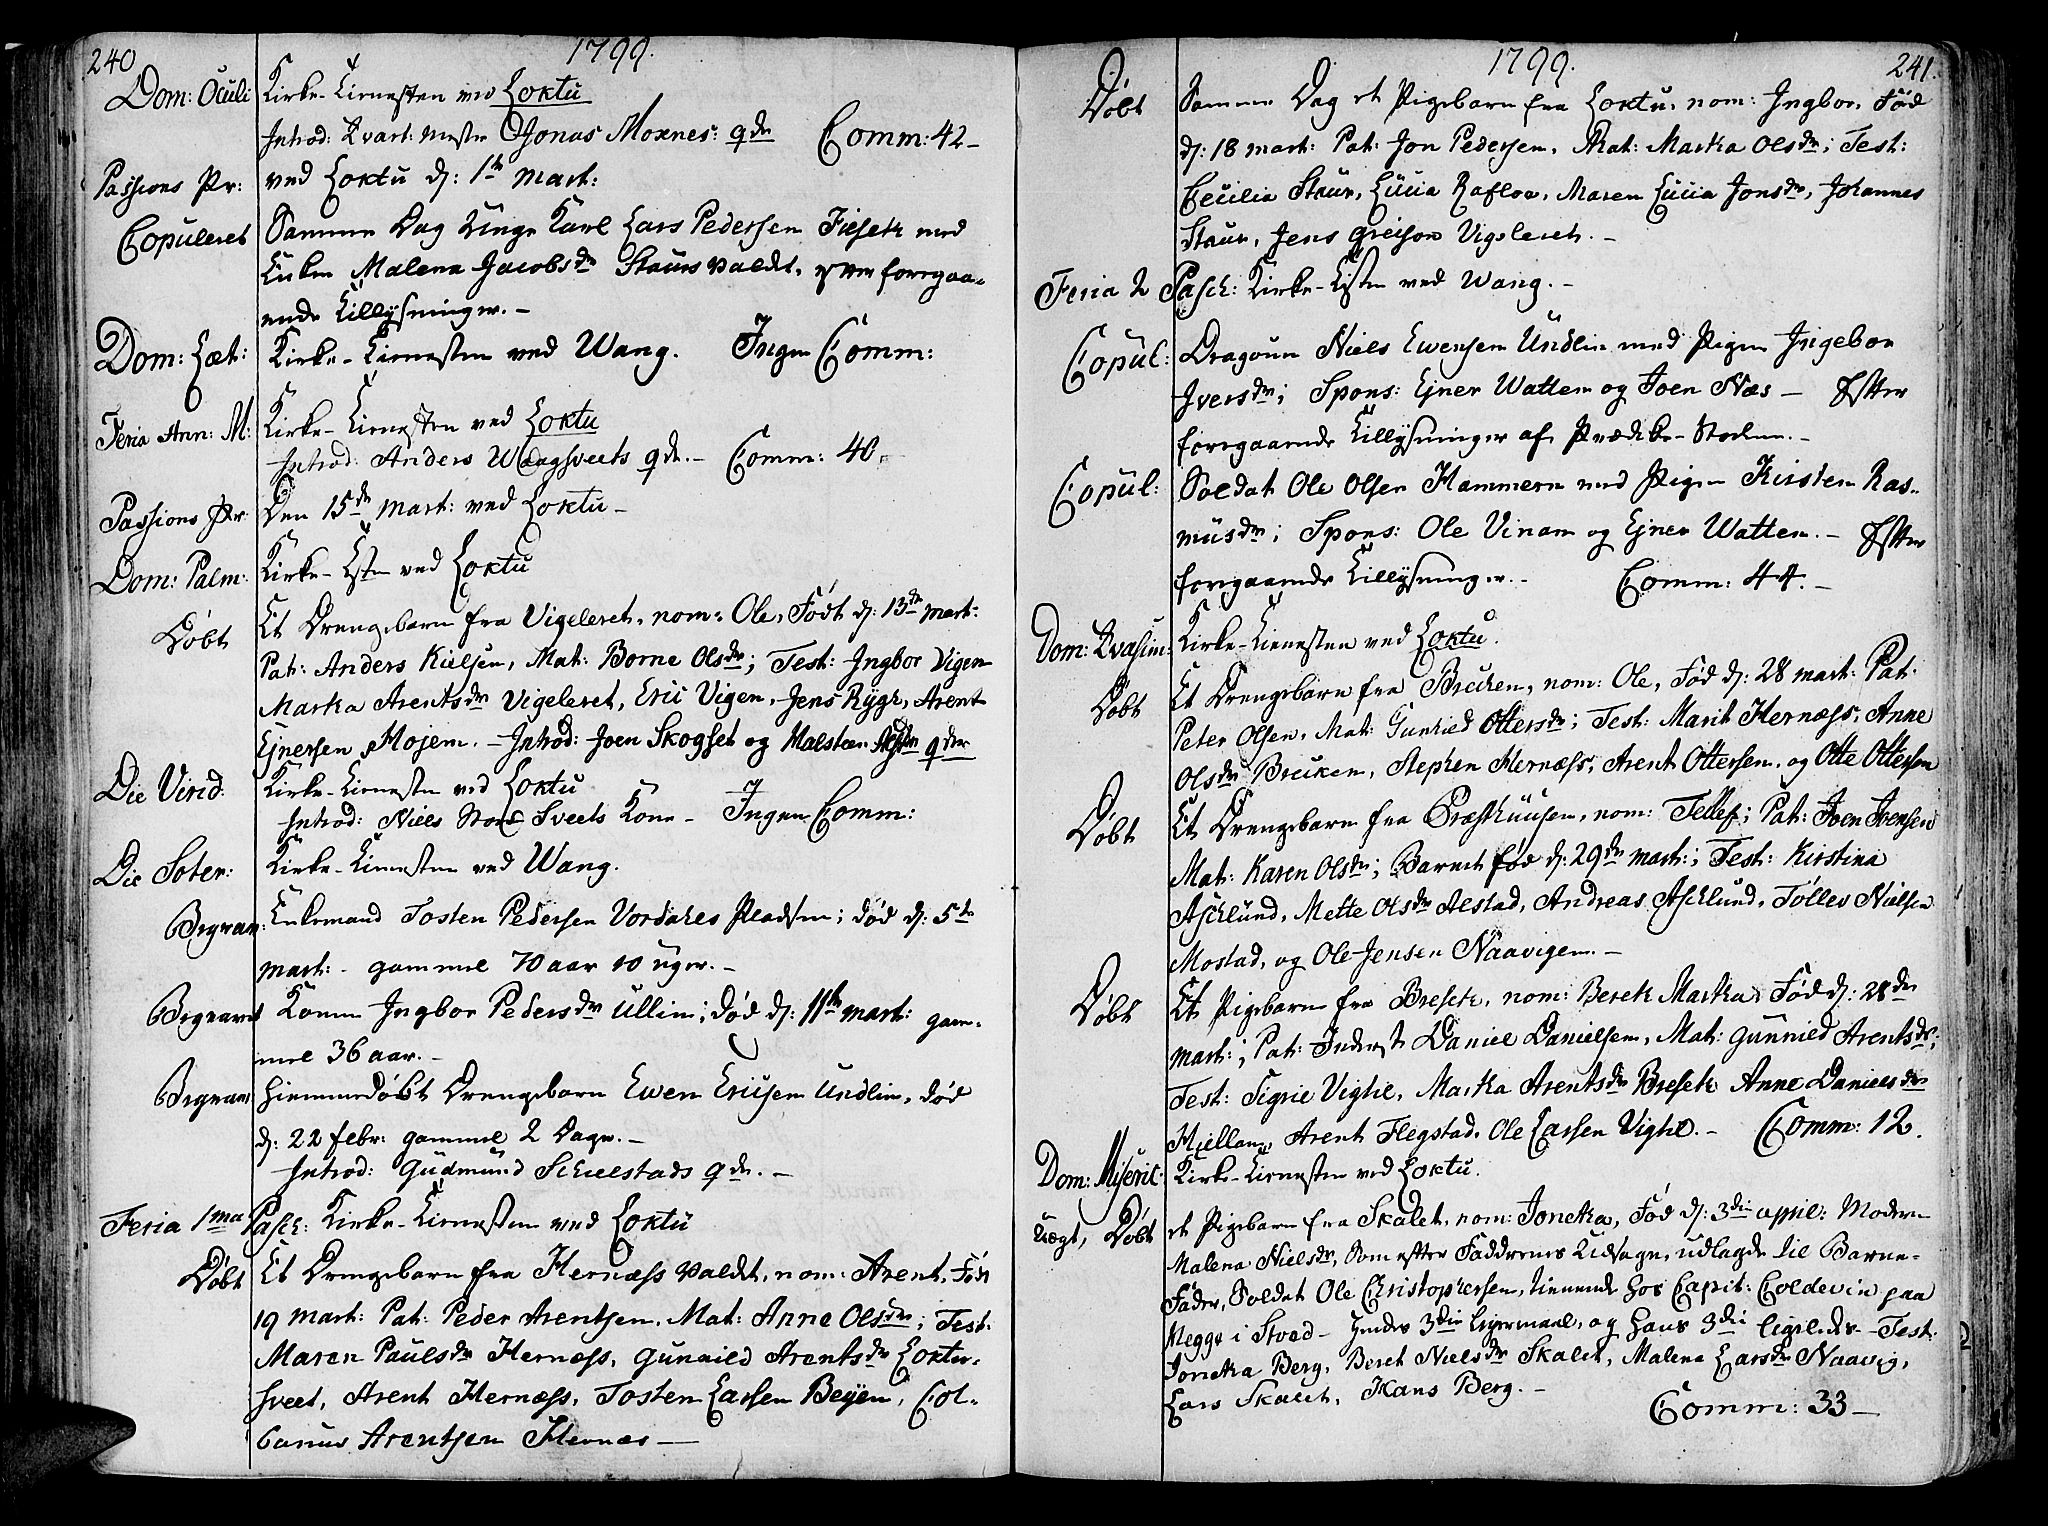 240
1799.
Dom: Oculi Kirke-Tienesten ved Loktu
Introd: Kvart: mester Jonas Moxnes: qde Comm: 42 -
Passions Pr: ved Loktu d: 1te Mart:
Copuleret Samme Dag Unge Karl Lars Pedersen Fiesek med
Enken Malena Jacobsdr Staursvaldt, efter foregaa-
ende Tillysninger. -
Dom: Læt: Kirke-Tienesten ved Wang. Ingen Comm:
Feria Ann: M: Kirke-Tienesten ved Loktu
Introd: Anders Waagsveets qde. - Comm: 40. -
Passions Pr: Den 15de Mart: ved Loktu -
Dom: Palm: Kirke-Tsten ved Loktu
Døbt Et Drengebarn fra Vigeleret, nom: Ole, Født d: 13de Mart:
Pat: Anders Kielsen, Mat: Borne Olsdr; Test: Ingbor Vigen
Marka Arentsdr Vigeleret, Eric Vigen, Jens Rygh, Arent
Ejnersen Mojem. - Introd: Joen Skogset og Halsteen qder
Die Virid: Kirke-Tienesten ved Loktu
Introd: Niels Store Sveets Kone - Ingen Comm:
Die Soter: Kirke-Tienesten ved Wang.
Begrav: Enkemand Tosten Pedersen Vordahls Pladsen; død d: 5te
Mart: - gammel 70 aar 10 uger. -
Begravet Konen Ingbor Pedersdr Ullin; død d: 11te Mart: gam-
mel 36 aar. -
Begravet Hiemmedøbt Drengebarn Ewen Ericsen Undlin, død
d: 22 febr: gammel 2 Dage. -
Introd: Gudmund Schielstads qde. -
Feria 1ma Pasch: Kirke-Tienesten ved Loktu
Døbt Et Drengebarn fra Hernæss valdt, nom: Arent, Fød
19 Mart: Pat: Peder Arentsen, Mat: Anne Olsdr; Test:
Maren Paulsdr Hernæss, Gunnild Arentsdr Loktu-
sveet, Arent Hernæss, Tosten Larsen Beyen, Col-
banus Arentsen Hernæs -
1799.
241.
Døbt Samme Dag et Pigebarn fra Loktu, nom: Ingbor, Fød
d: 18 Mart: Pat: Jon Pedersen, Mat: Marka Olsdr; Test:
Cecilia Staur, Lucia Rafloe, Maren Lucia Jonsdr, Johannes
Staur, Jens Greison Vigeleret. -
Feria 2 Pasch: Kirke-Tsten ved Wang. -
Copul: Dragoun Niels Ewensen Undlin med Pigen Ingebor
Iversdr; Spons: Ejner Wattem og Joen Næs - Efter
foregaaende Tillysninger af Prædike-Stolen. -
Copul: Soldat Ole Olsen Hammern med Pigen Kirsten Ras-
musdr; Spons: Ole Vinam og Ejner Wattem. - Efter
foregaaende Tillysninger. - Comm: 44. -
Dom: Kvasim: Kirke-Tienesten ved Loktu.
Døbt Et Drengebarn fra Breiken, nom: Ole, Fød d: 28 Mart: Pat:
Peter Olsen, Mat: Gunhild Ottersdr; Test: Marit Hernæss, Anne
Olsdr Breiken, Stephen Hernæss, Arent Ottersen, og Otte Ottersen
Døbt Et Drengebarn fra Præsthuusen, nom: Tellef; Pat: Joen Joensen
Mat: Karen Olsdr; Barnet fød d: 29de Mart:; Test: Kirstina
Aschlund, Mette Olsdr Alstad, Andreas Aschlund, Tøllev Nielsen
Mostad, og Ole Jensen Naavigem. -
Døbt Et Pigebarn fra Breseth, nom: Bereth Marka, Fød d: 28de
Mart:; Pat: Inderst Daniel Danielsen, Mat: Gunnild Arentsdr;
Test: Sigrie Vighe, Marka Arentsdr Breseth Anne Danielsdr
Hiellan, Arent Flegstad, Ole Larsen Vighe. - Comm: 12.
Dom: Miseric: Kirke-Tienesten ved Loktu.
Uægt, Døbt et Pigebarn fra Skalet, nom: Joncka, Fød d: 3die April: Moderen
Malena Nielsdr, Som efter Faddrenes Udsagn, udlagde til Barne-
Fader, Soldat Ole Christophersen, tienende hos Capit: Coldevin paa
Megge i Stod - hendes 3die Leyermaal, og hans 3die ligeledes - Test:
Joncka Berg, Beret Nielsdr Skalet, Malena Larsdr Naavig,
Lars Skalet, Hans Berg. -
Comm: 33 -